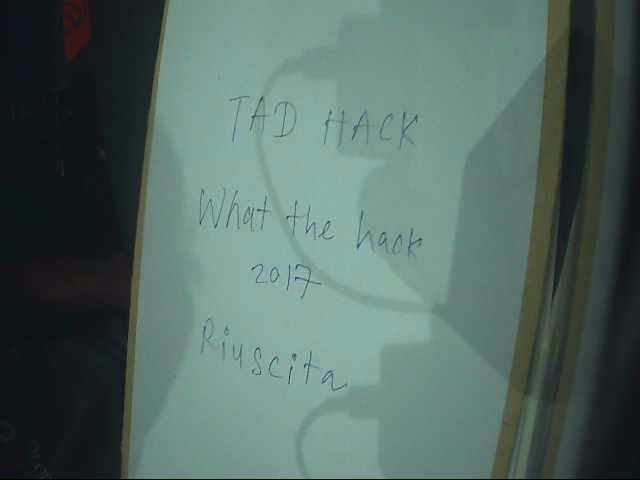 TAD HACK
What the hack
2017
Riuscita